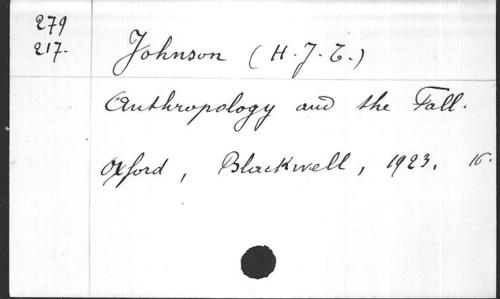 279
217.
Johnson (H. J. T.)
Anthropology and the Fall.
Oxford, Blackwell, 1923. 16.